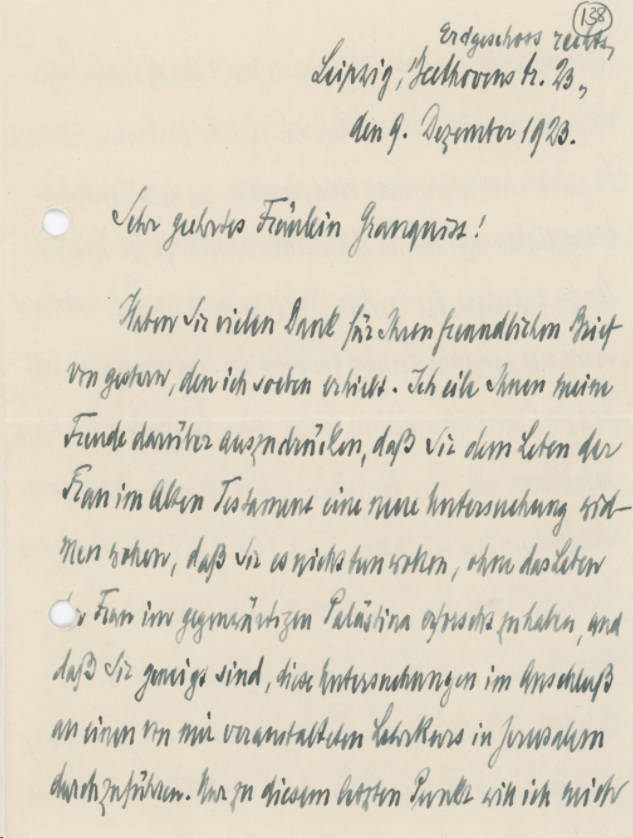 138
Erdgeschoss rechts,
Leipzig, Beethovenstr. 23,
den 9. Dezember 1923.
Sehr geehrtes Fräulein Granquist!
Haben Sie vielen Dank für Ihren freundlichen Brief
von gestern, den ich soeben erhielt. Ich eile Ihnen meine
Freude darüber auszudrücken, daß Sie dem Leben der
Frau im Alten Testament eine neue Untersuchung wid-
men wollen, daß Sie es nicht tun wollen, ohne das Leben
der Frau im gegenwärtigen Palästina erforscht zu haben, und
daß Sie geneigt sind, diese Untersuchungen im Anschluß
an einen von mir veranstalteten Lehrkurs in Jerusalem
durchzuführen. Nur zu diesem letzten Punkt will ich mich